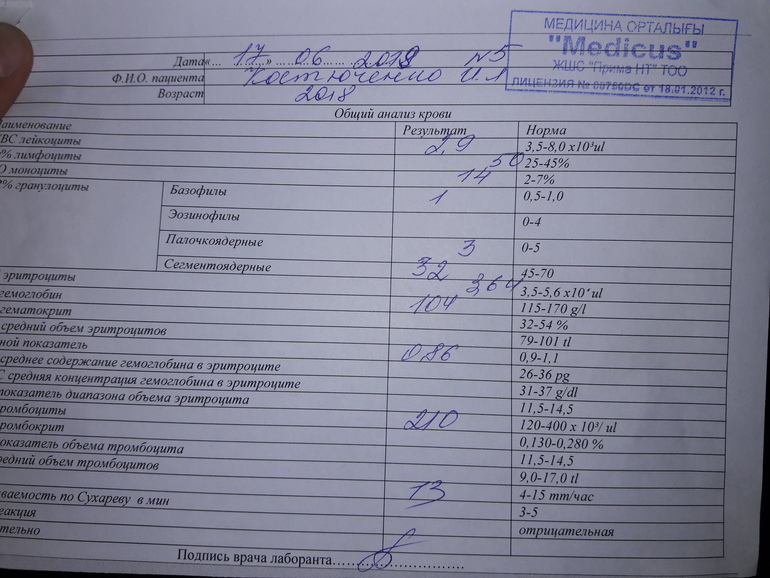 МЕДИЦИНА ОРТАЛЫҒЫ
"Medicus"
ЖШС "Прима НТ" ТОО
ЛИЦЕНЗИЯ № 00750DC от 18.01.2012 г.
Дата «... 17 ...» ..... 06 ...... 2019 N5
Ф.И.О. пациента Костюченко И.А
Возраст 2018
Общий анализ крови
Наименование Результат Норма
ВС лейкоциты 2,9 3,5-8,0 х10³ul
% лимфоциты 50 25-45%
О моноциты 14 2-7%
% гранулоциты Базофилы 1 0,5-1,0
Эозинофилы 0-4
Палочкоядерные 3 0-5
Сегментоядерные 32 45-70
эритроциты 3,64 3,5-5,6 х10⁶ ul
гемоглобин 104 115-170 g/l
гематокрит 32-54 %
средний объем эритроцитов 79-101 tl
ной показатель 0,86 0,9-1,1
среднее содержание гемоглобина в эритроците 26-36 pg
С средняя концентрация гемоглобина в эритроците 31-37 g/dl
показатель диапазона объема эритроцита 11,5-14,5
ромбоциты 210 120-400 х 10³/ ul
ромбокрит 0,130-0,280 %
оказатель объема тромбоцита 11,5-14,5
редний объем тромбоцитов 9,0-17,0 tl
13 4-15 mm/час
ваемость по Сухареву в мин 3-5
еакция отрицательная
тельно
Подпись врача лаборанта...........................